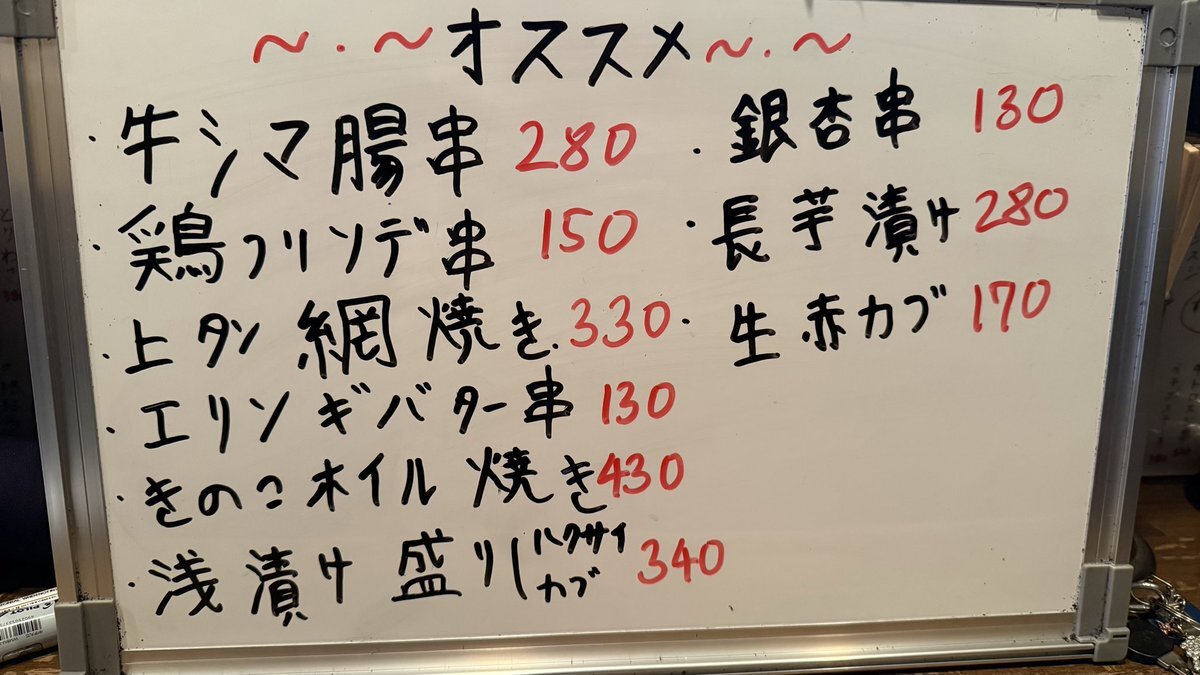 ～・～オススメ～・～
・牛シマ腸串 280
・鶏フリソデ串 150
・上タン網焼き 330
・エリンギバター串 130
・きのこホイル焼き 430
・浅漬け盛り ハクサイ カブ 340
・銀杏串 130
・長芋漬け 280
・生赤カブ 170
PILOT